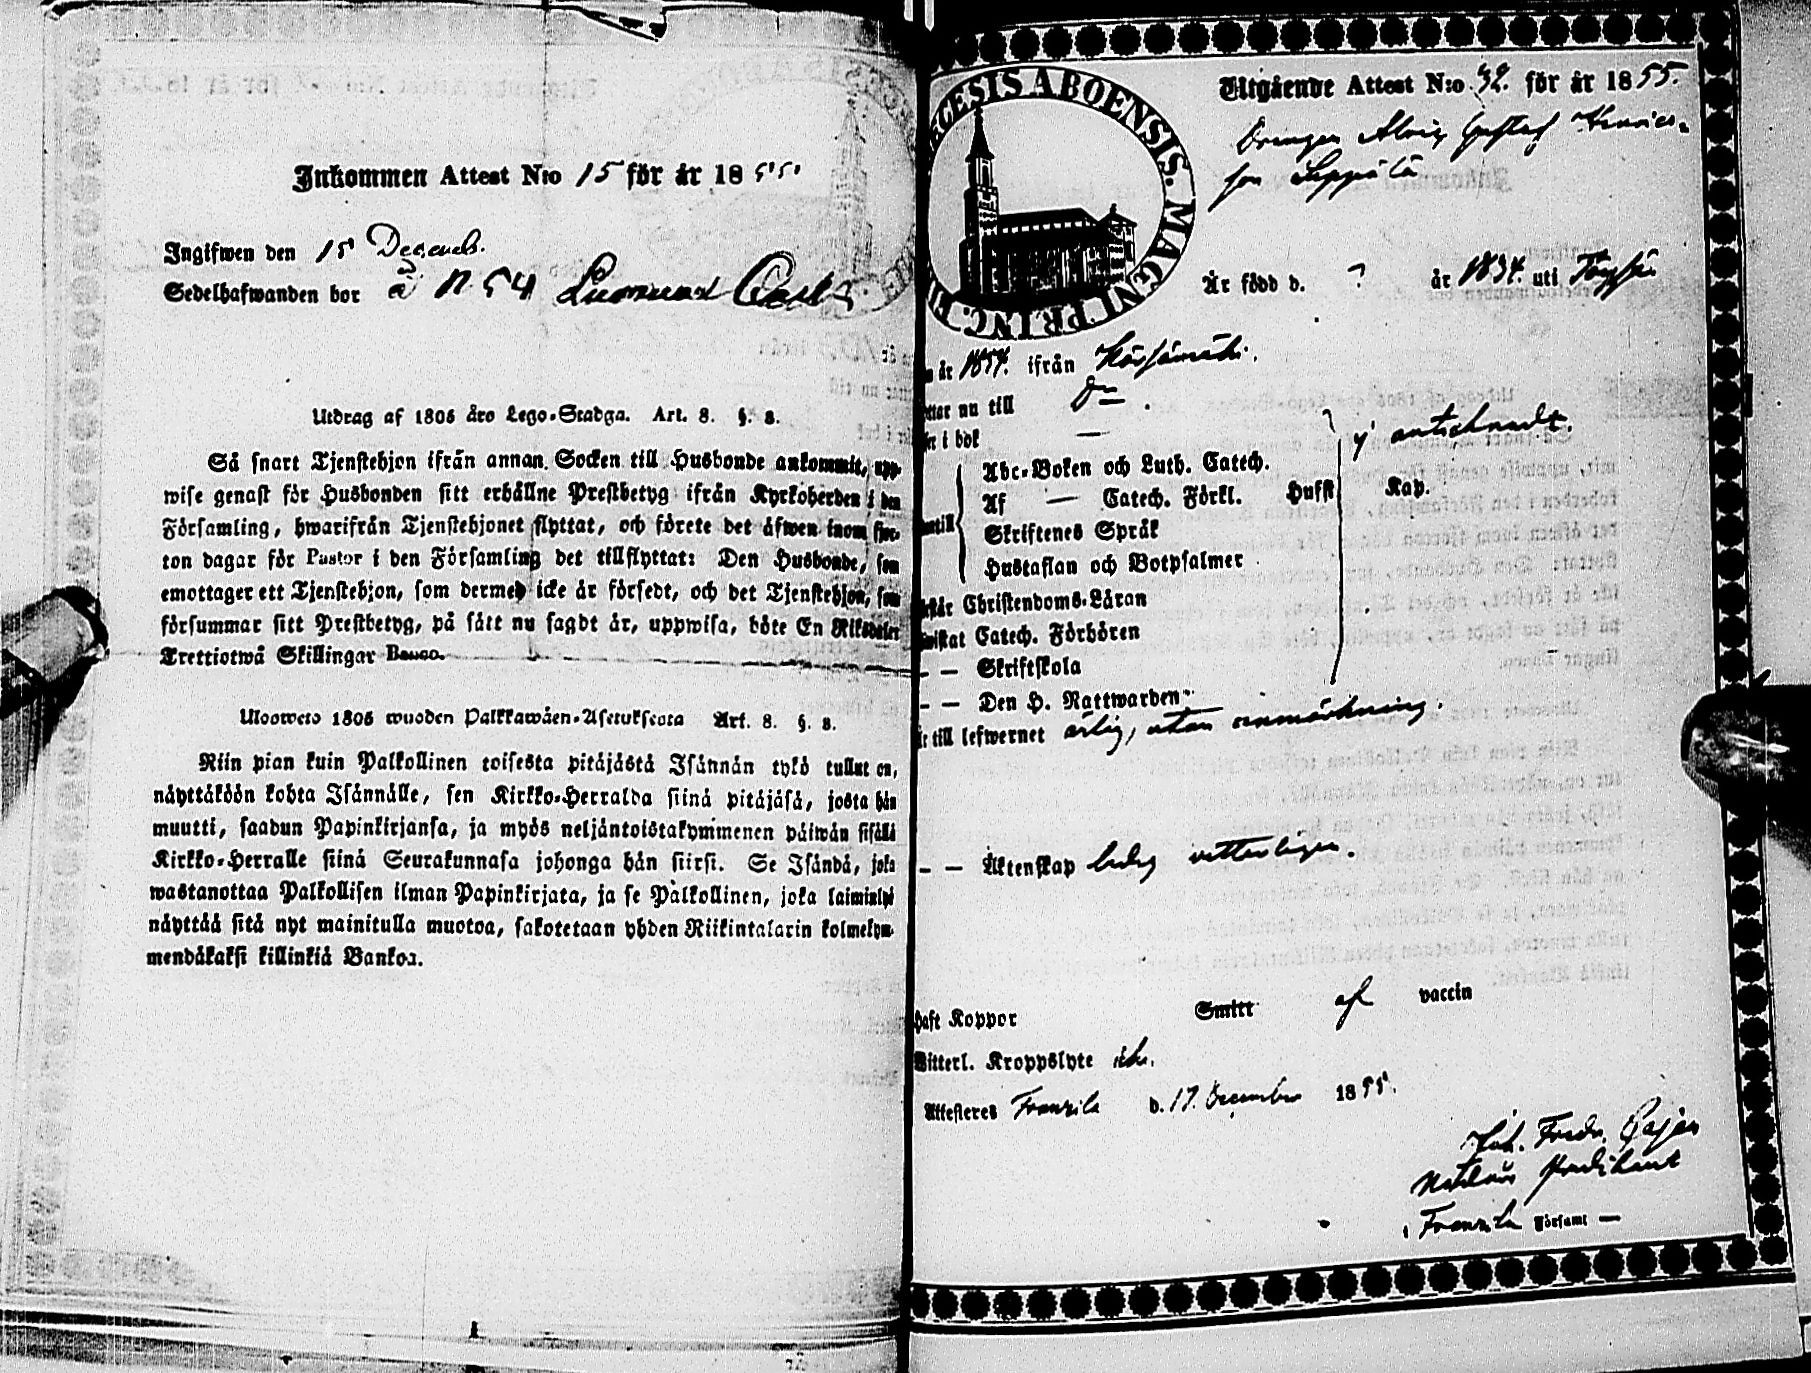 Inkommen Attest N:o 15 för år 1855.
Ingifwen den 15 Decemb.
Sedelhafwanden bor å N 54
Utdrag af 1805 års Lego-Stadga. Art. 8. §. 8.
Så snart Tjenstehjon ifrån annan Socken till Husbonde ankommit, upp-
wise genast för Husbonden sitt erhållne Prestbetyg ifrån Kyrkoherden i den
Församling, hwarifrån Tjenstehjonet flyttat, och förete det äfwen inom fjor-
ton dagar för Pastor i den Församling det tillflyttat: Den Husbonde, som
emottager ett Tjenstehjon, som dermed icke är försedt, och det Tjenstehjon, som
försummar sitt Prestbetyg, på sätt nu sagdt är, uppwisa, böte En Riksdaler
Trettiotwå Skillingar Banco.
Ulosweto 1805 wuoden Palkkawäen-Asetuksesta Art. 8. §. 8.
Niin pian kuin Palkollinen toisesta pitäjästä Isännän tykö tullut on,
näyttäköön kohta Isännälle, sen Kirkko-Herralda siinä pitäjäsä, josta hän
muutti, saadun Papinkirjansa, ja myös neljäntoistakymmenen päiwän sisällä
Kirkko-Herralle siinä Seurakunnasa johonga hän siirsi. Se Isändä, joka
wastanottaa Palkollisen ilman Papinkirjata, ja se Palkollinen, joka laiminlyö
näyttää sitä nyt mainitulla muotoa, sakotetaan yhden Riikintalarin kolmekym-
mendäkaksi killinkiä Bankoa.
CESIS ABOENSIS. MAGNI PRINC. FI
Utgående Attest N:o 32. för år 1855.
Drengen Gustaf Henrics-
son
Är född d. ? år 1834. uti
år 1854. ifrån
nu till
i bok —
Abc-Boken och Luth. Catech. ej antecknadt.
Af — Catech. Förkl. Husst Kap.
Skriftenes Språk
Hustaflan och Botpsalmer
Christendoms-Läran
Catech. Förhören
— — Skriftskola
— — Den H. Nattwarden
till lefwernet ärlig, utan anmärkning.
— — Äktenskap ledig vetterligen.
Haft Koppor Smitt af vaccin
Witterl. Kroppslyte icke.
Attesteras d. 17. December 1855.
Joh. Fredr.
Predikant
i Församl —